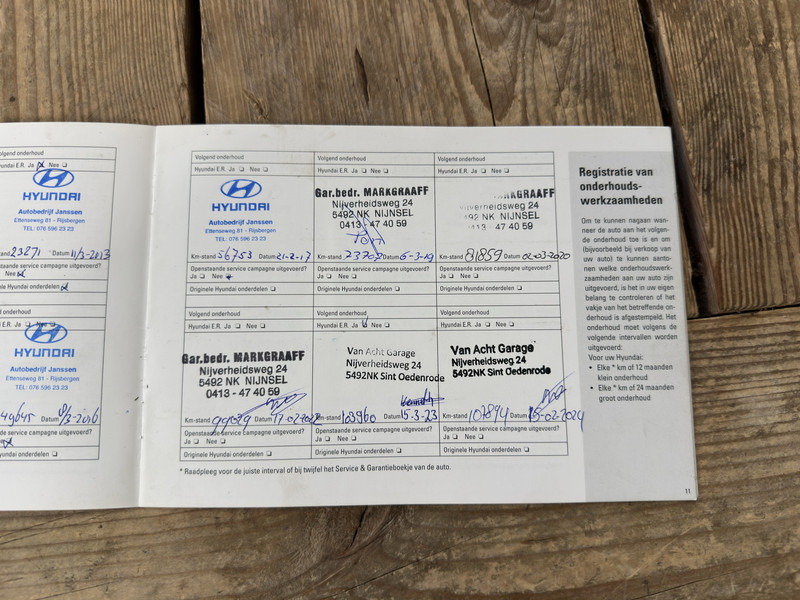 Hyundai E.R. Ja Nee
HYUNDAI
Autobedrijf Janssen
Ettenseweg 61 - Rijsbergen
TEL: 076 596 23 23
23271 Datum 11/3-2013
Originele Hyundai onderdelen
HYUNDAI
Autobedrijf Janssen
Ettenseweg 61 - Rijsbergen
TEL: 076 596 23 23
49645 Datum
Volgend onderhoud
Hyundai E.R. Ja Nee
HYUNDAI
Autobedrijf Janssen
Ettenseweg 61 - Rijsbergen
TEL: 076 596 23 23
Km-stand 56753 Datum 21-2-17
Openstaande service campagne uitgevoerd?
Ja Nee
Originele Hyundai onderdelen
Volgend onderhoud
Hyundai E.R. Ja Nee
Gar.bedr. MARKGRAAFF
Nijverheidsweg 24
5492 NK NIJNSEL
0413 - 47 40 59
Km-stand Datum 6-3-19
Openstaande service campagne uitgevoerd?
Ja Nee
Originele Hyundai onderdelen
Volgend onderhoud
Hyundai E.R. Ja Nee
MARKGRAAFF
Nijverheidsweg 24
NK NIJNSEL
47 40 59
Km-stand 81859 Datum 02-03-2020
Openstaande service campagne uitgevoerd?
Ja Nee
Originele Hyundai onderdelen
Volgend onderhoud
Hyundai E.R. Ja Nee
Gar.bedr. MARKGRAAFF
Nijverheidsweg 24
5492 NK NIJNSEL
0413 - 47 40 59
Km-stand Datum
Openstaande service campagne uitgevoerd?
Ja Nee
Originele Hyundai onderdelen
Volgend onderhoud
Hyundai E.R. Ja Nee
Van Acht Garage
Nijverheidsweg 24
5492NK Sint Oedenrode
Km-stand 103960 Datum 15-3-23
Openstaande service campagne uitgevoerd?
Ja Nee
Originele Hyundai onderdelen
Volgend onderhoud
Hyundai E.R. Ja Nee
Van Acht Garage
Nijverheidsweg 24
5492NK Sint Oedenrode
Km-stand 107894 Datum 15-02-2024
Openstaande service campagne uitgevoerd?
Ja Nee
Originele Hyundai onderdelen
* Raadpleeg voor de juiste interval of bij twijfel het Service & Garantieboekje van de auto.
Registratie van
onderhouds-
werkzaamheden
Om te kunnen nagaan wan-
neer de auto aan het volgen-
de onderhoud toe is en om
(bijvoorbeeld bij verkoop van
uw auto) te kunnen aanto-
nen welke onderhoudswerk-
zaamheden aan uw auto zijn
uitgevoerd, is het in uw eigen
belang te controleren of het
vakje van het betreffende on-
derhoud is afgestempeld. Het
onderhoud moet volgens de
volgende intervallen worden
uitgevoerd:
Voor uw Hyundai:
• Elke * km of 12 maanden
klein onderhoud
• Elke * km of 24 maanden
groot onderhoud
11